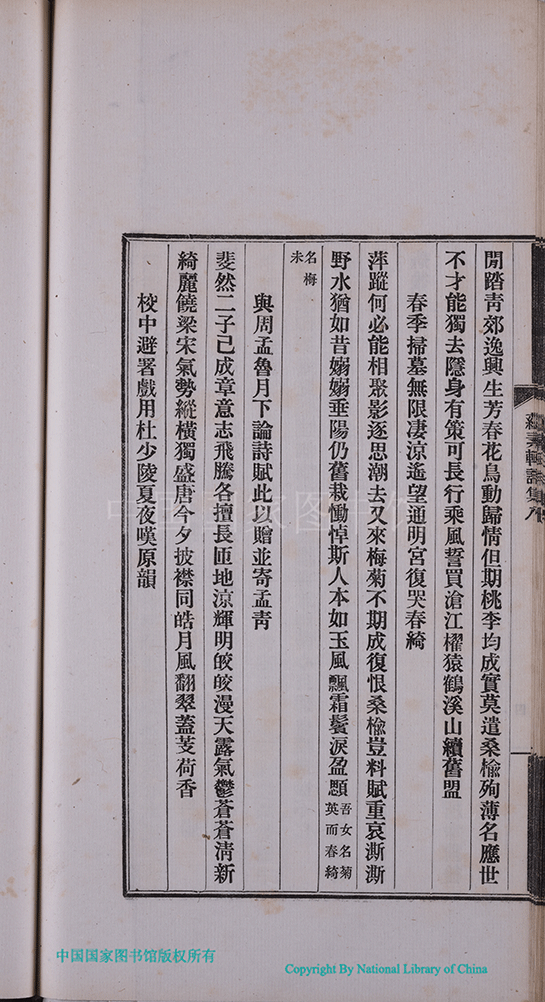 閒踏靑郊逸興生芳春花鳥動歸情但期桃李均成實莫遣桑榆殉薄名應世
不才能獨去隱身有策可長行乘風誓買滄江櫂猿鶴溪山續舊盟
春季掃墓無限凄涼遙望通明宮復哭春綺
萍蹤何必能相聚影逐思潮去又來梅菊不期成復恨桑榆豈料賦重哀澌澌
野水猶如昔嫋嫋垂陽仍舊栽慟悼斯人本如玉風飄霜鬢淚盈顋吾女名菊
英而春綺
名梅
未
與周孟魯月下論詩賦此以贈並寄孟靑
斐然二子已成章意志飛騰各擅長匝地涼輝明皎皎漫天露氣鬱蒼蒼淸新
綺麗饒梁宋氣勢縱橫獨盛唐今夕披襟同皓月風翻翠蓋芰荷香
校中避署戲用杜少陵夏夜嘆原韻
中国国家图书馆版权所有
Copyright By National Library of China